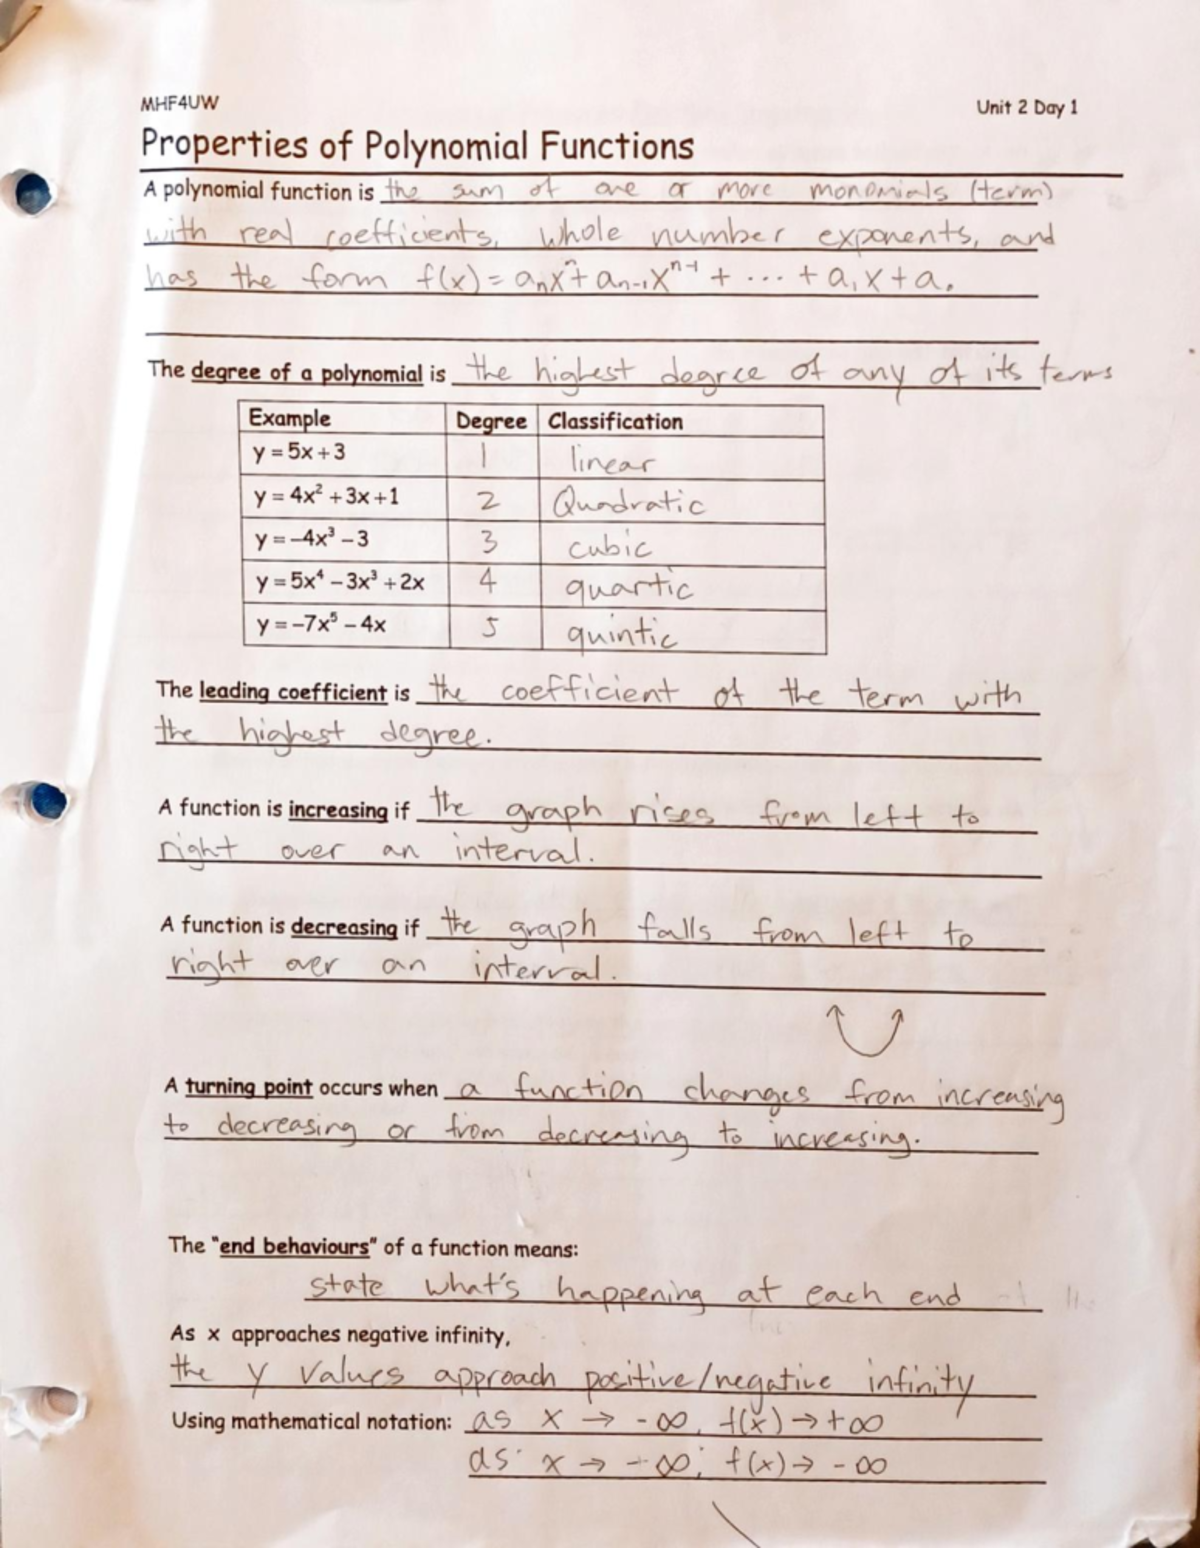 MHF4UW
Unit 2 Day 1
Properties of Polynomial Functions
A polynomial function is the sum of one or more monomials (term)
with real coefficients, whole number exponents, and
has the form f(x) = aₙxⁿ + aₙ₋₁xⁿ⁻¹ + ... + a₁x + a₀
The degree of a polynomial is the highest degree of any of its terms
Example Degree Classification
y = 5x + 3 1 linear
y = 4x² + 3x + 1 2 Quadratic
y = –4x³ – 3 3 cubic
y = 5x⁴ – 3x³ + 2x 4 quartic
y = –7x⁵ – 4x 5 quintic
The leading coefficient is the coefficient of the term with
the highest degree.
A function is increasing if the graph rises from left to
right over an interval.
A function is decreasing if the graph falls from left to
right over an interval.
A turning point occurs when a function changes from increasing
to decreasing or from decreasing to increasing.
The "end behaviours" of a function means:
state what's happening at each end
As x approaches negative infinity,
the y values approach positive/negative infinity
Using mathematical notation: as x → -∞, f(x) → +∞
as x → -∞, f(x) → -∞